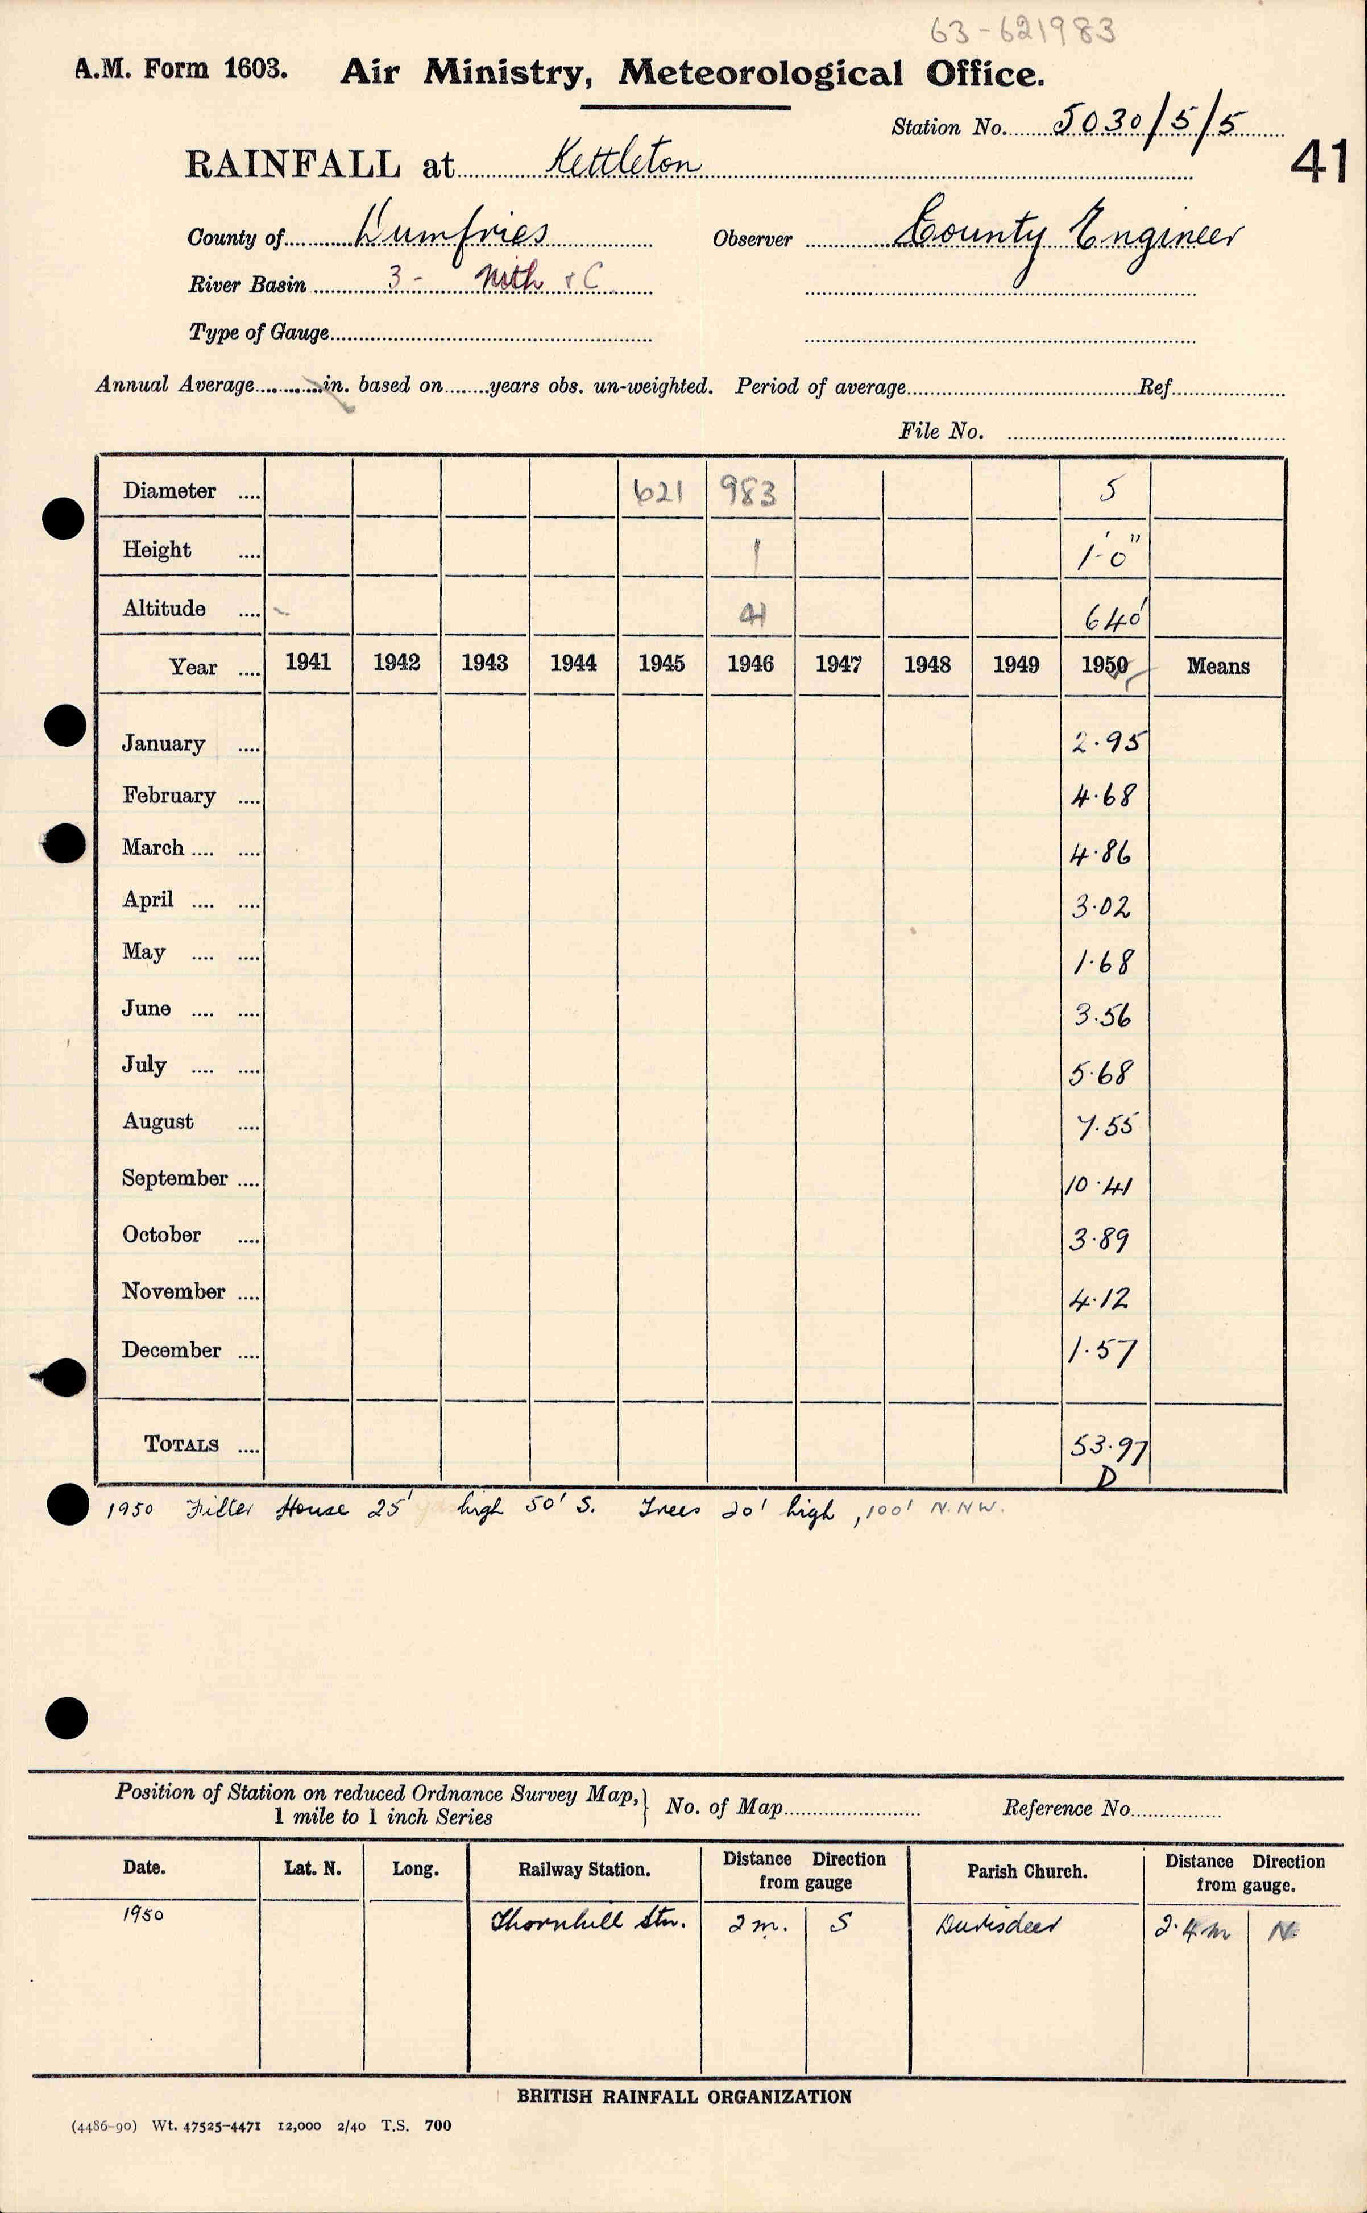 63-621983
A.M. Form 1603. Air Ministry, Meteorological Office.
Station No. 5030/5/5
41
RAINFALL at Kettleton
County of Dumfries Observer County Engineer
River Basin 3 - Nith & C
Type of Gauge
Annual Average in. based on years obs. un-weighted. Period of average Ref.
File No.
Diameter 621 983 5
Height 1 1'0"
Altitude 41 640'
Year 1941 1942 1943 1944 1945 1946 1947 1948 1949 1950 Means
January 2.95
February 4.68
March 4.86
April 3.02
May 1.68
June 3.56
July 5.68
August 7.55
September 10.41
October 3.89
November 4.12
December 1.57
TOTALS 53.97
D
1950 Filter House 25' high 50' S. Trees 20' high, 100' N.NW.
Position of Station on reduced Ordnance Survey Map, 1 mile to 1 inch Series } No. of Map Reference No.
Date. Lat. N. Long. Railway Station. Distance Direction from gauge Parish Church. Distance Direction from gauge.
1950 Thornhill Stn. 2 m. S Durisdeer 2.4m N
BRITISH RAINFALL ORGANIZATION
(4486-90) Wt. 47525-4471 12,000 2/40 T.S. 700